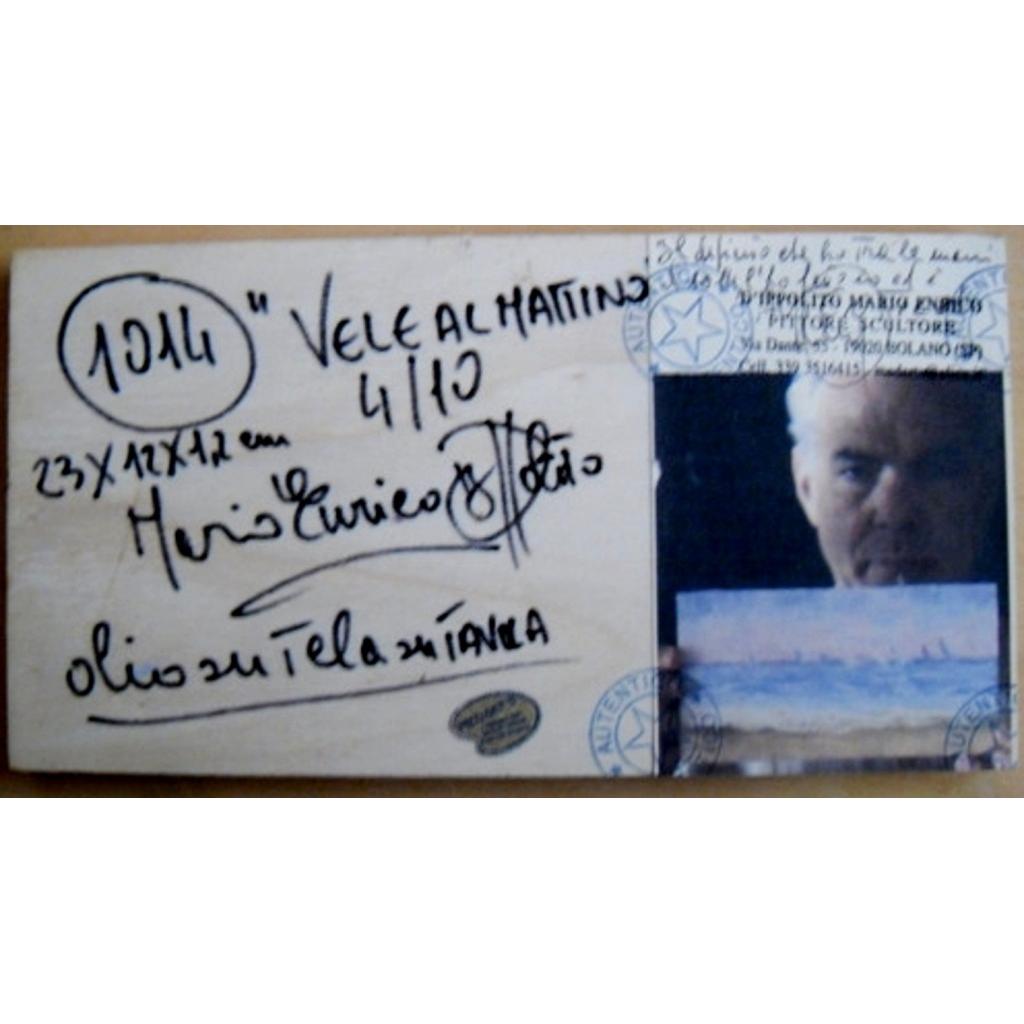 1014
" VELE AL MATTINO"
4/10
23X12X1,2 cm
Mario Enrico D'Ippolito
olio su Tela su TAVOLA
Il dipinto che ho tra le mani
D'IPPOLITO MARIO ENRICO
PITTORE SCULTORE
Via Dante, 55 - 19020 BOLANO (SP)
Cell. 339 3516415
AUTENTI
AUTENTI